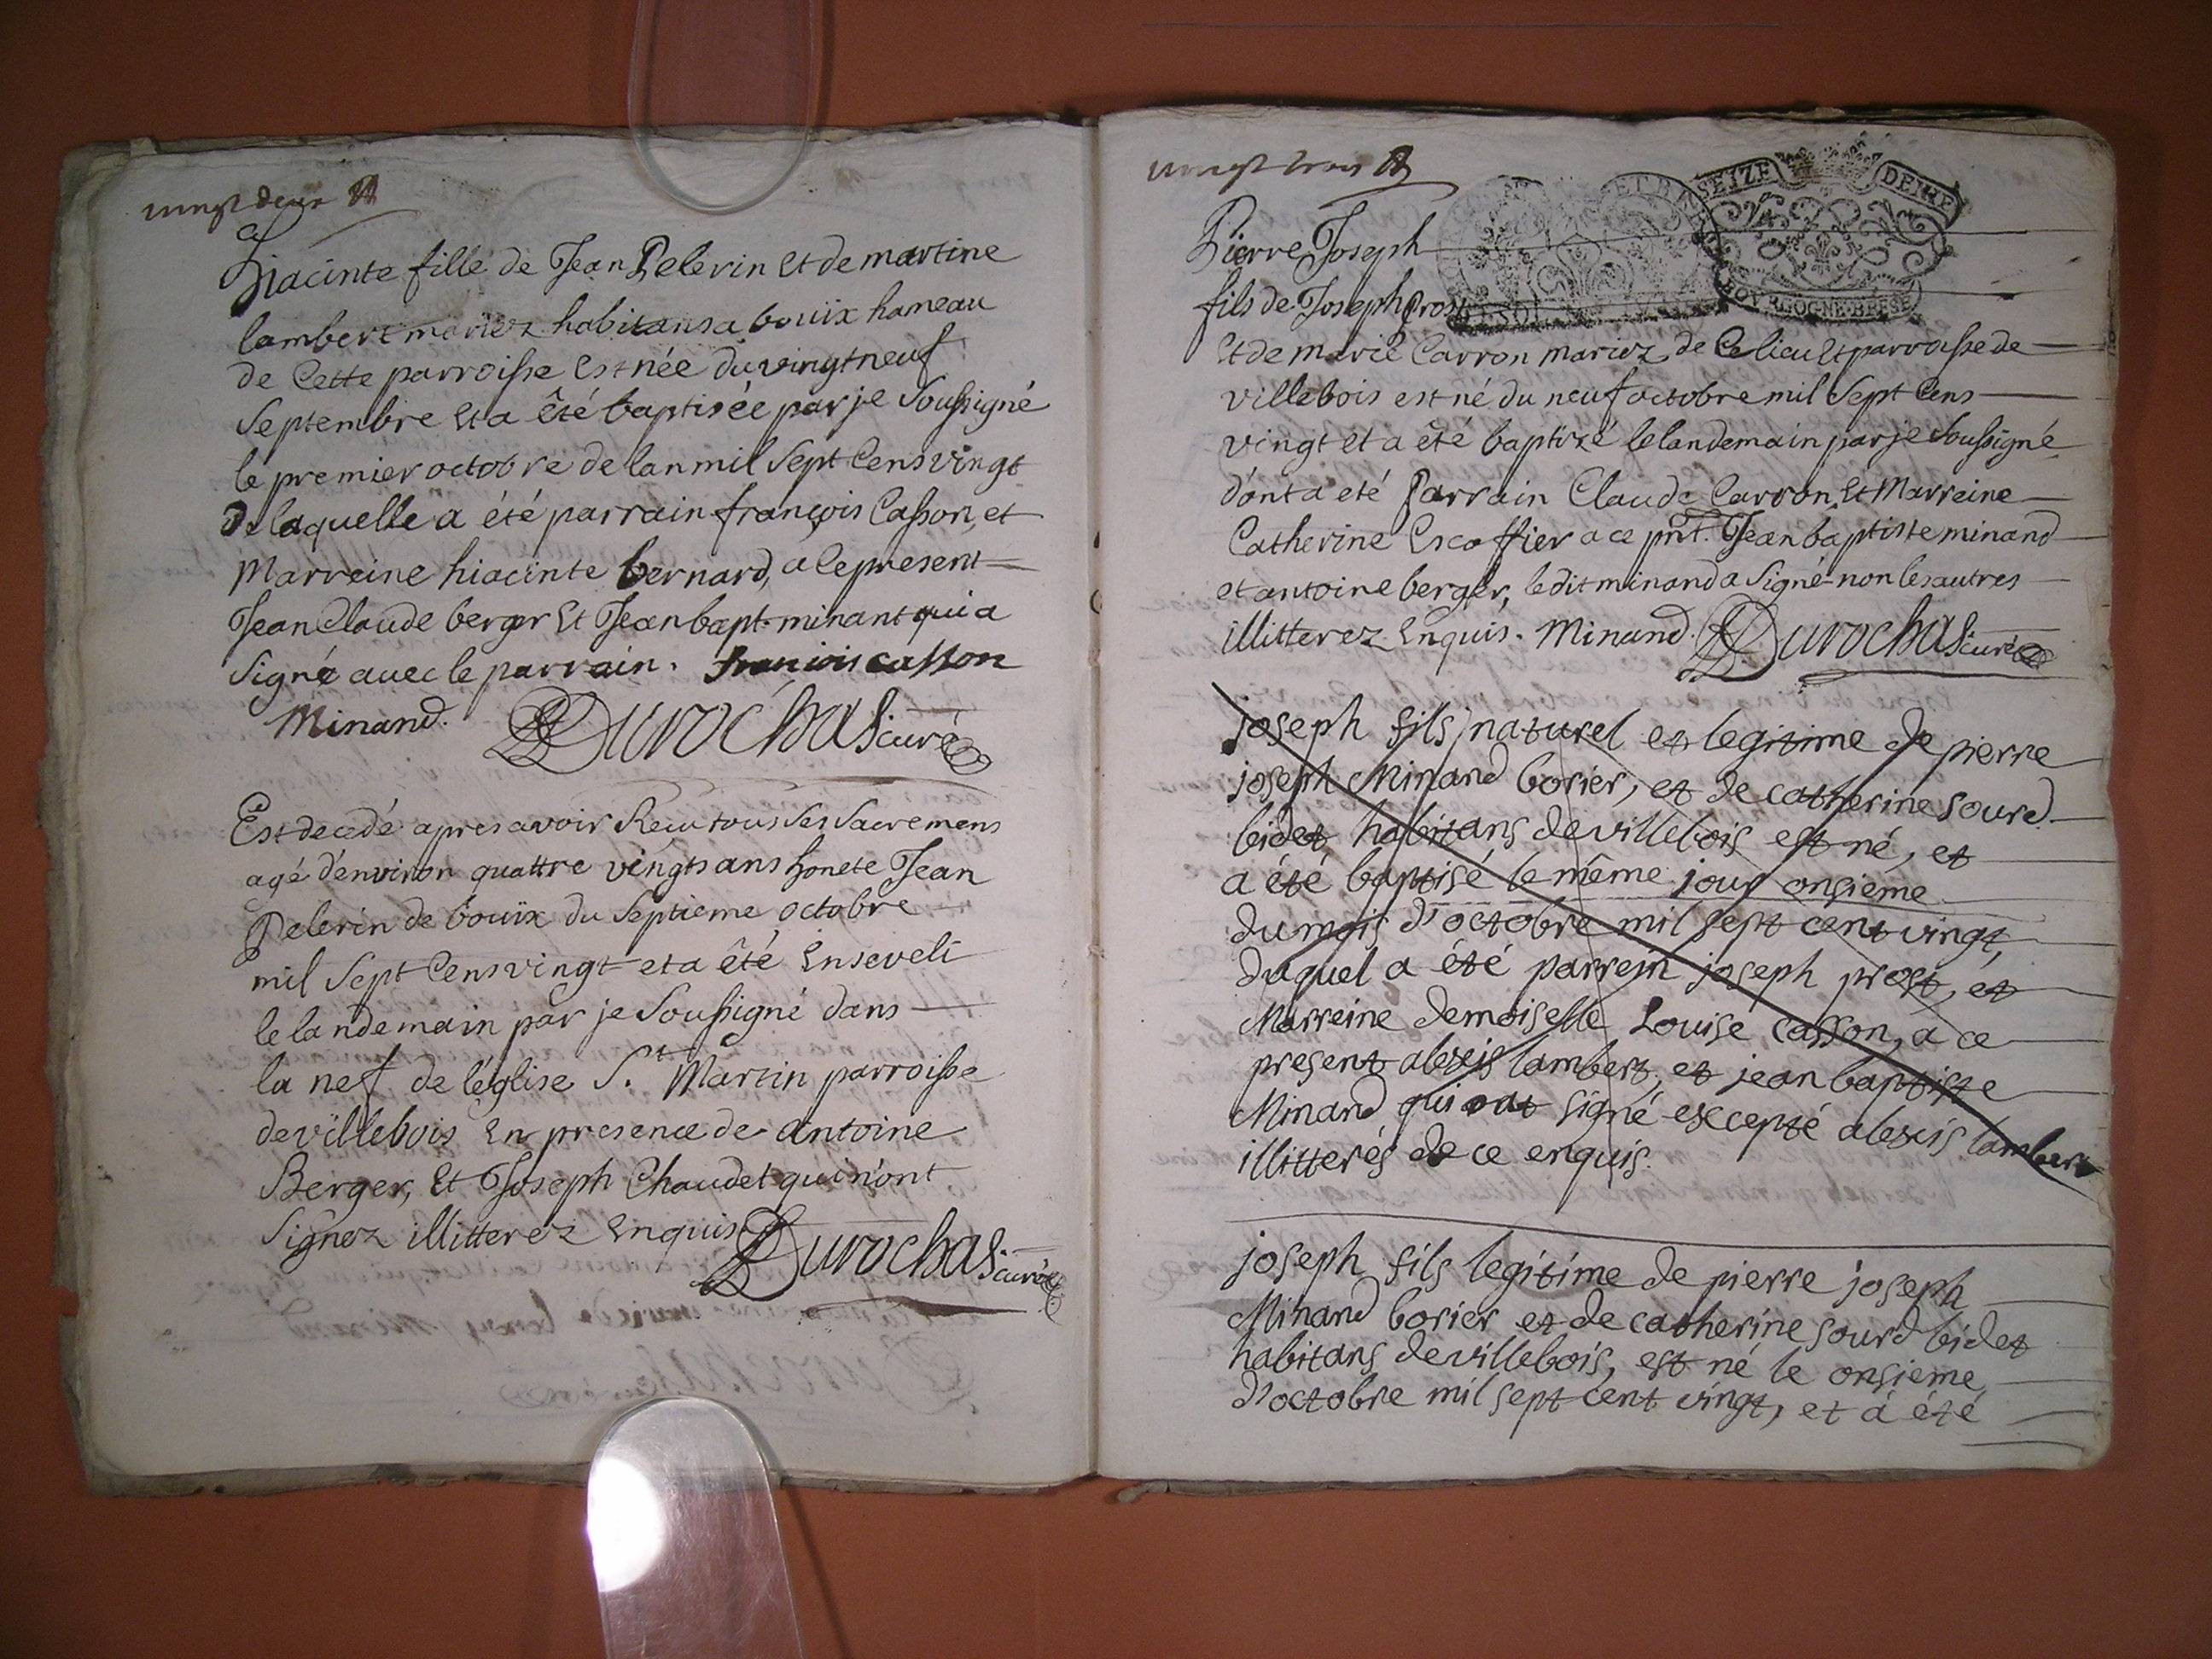 vingt deux
Hiacinte fille de Jean Pelerin Et de martine
lambert mariez habitans a bouïx hameau
de Cette parroisse Est née du vingt neuf
Septembre Et a êté baptisée par je Soussigné
le premier octobre de lan mil Sept Cens vingt
De laquelle a été parrain françois Casson, et
Marreine hiacinte bernard, a Ce present
Jean Claude berger Et Jean bapt. minant qui a
Signé avec le parrain. francois casson
Minand. Durochas curé
Est decedé apres avoir Recu tous Ses Sacremens
agé d'environ quattre vingts ans honete Jean
Pelerin de bouïx du Septieme octobre
mil Sept Cens vingt et a êté Enseveli
le landemain par je Soussigné dans
la nef de l'église St. Martin parroisse
de villebois En presence de antoine
Berger, Et Joseph Chaudet qui n'ont
Signez illitterez Enquis Durochas curé
vingt trois
SEIZE DENIE
ET BRE
BOVRGOGNE·BRESE
Pierre Joseph
fils de Joseph Prost
Et de marie Carron mariez de Ce lieu Et parroisse de
villebois est né du neuf octobre mil Sept Cens
vingt et a êté baptizé le landemain par je Soussigné
dont a eté Parrain Claude Carron Et Marreine
Catherine Escoffier a ce pnt. Jean baptiste minand
et antoine berger, le dit minand a Signé non les autres
illitterez Enquis. Minand. Durochas curé
joseph fils naturel et legitime de pierre
joseph Minand borier, et de catherine sourd
bidet habitans de villebois est né, et
a été baptisé le même jour onsieme
du mois d'octobre mil sept cent vingt,
duquel a été parrein joseph prost, et
Marreine demoiselle Louise casson, a ce
present alexis lambert, et jean baptiste
Minand qui ont signé excepté alexis lambert
illitterés de ce enquis.
joseph fils legitime de pierre joseph
Minand borier et de catherine sourd bidet
habitans de villebois, est né le onsieme
d'octobre mil sept cent vingt, et á été